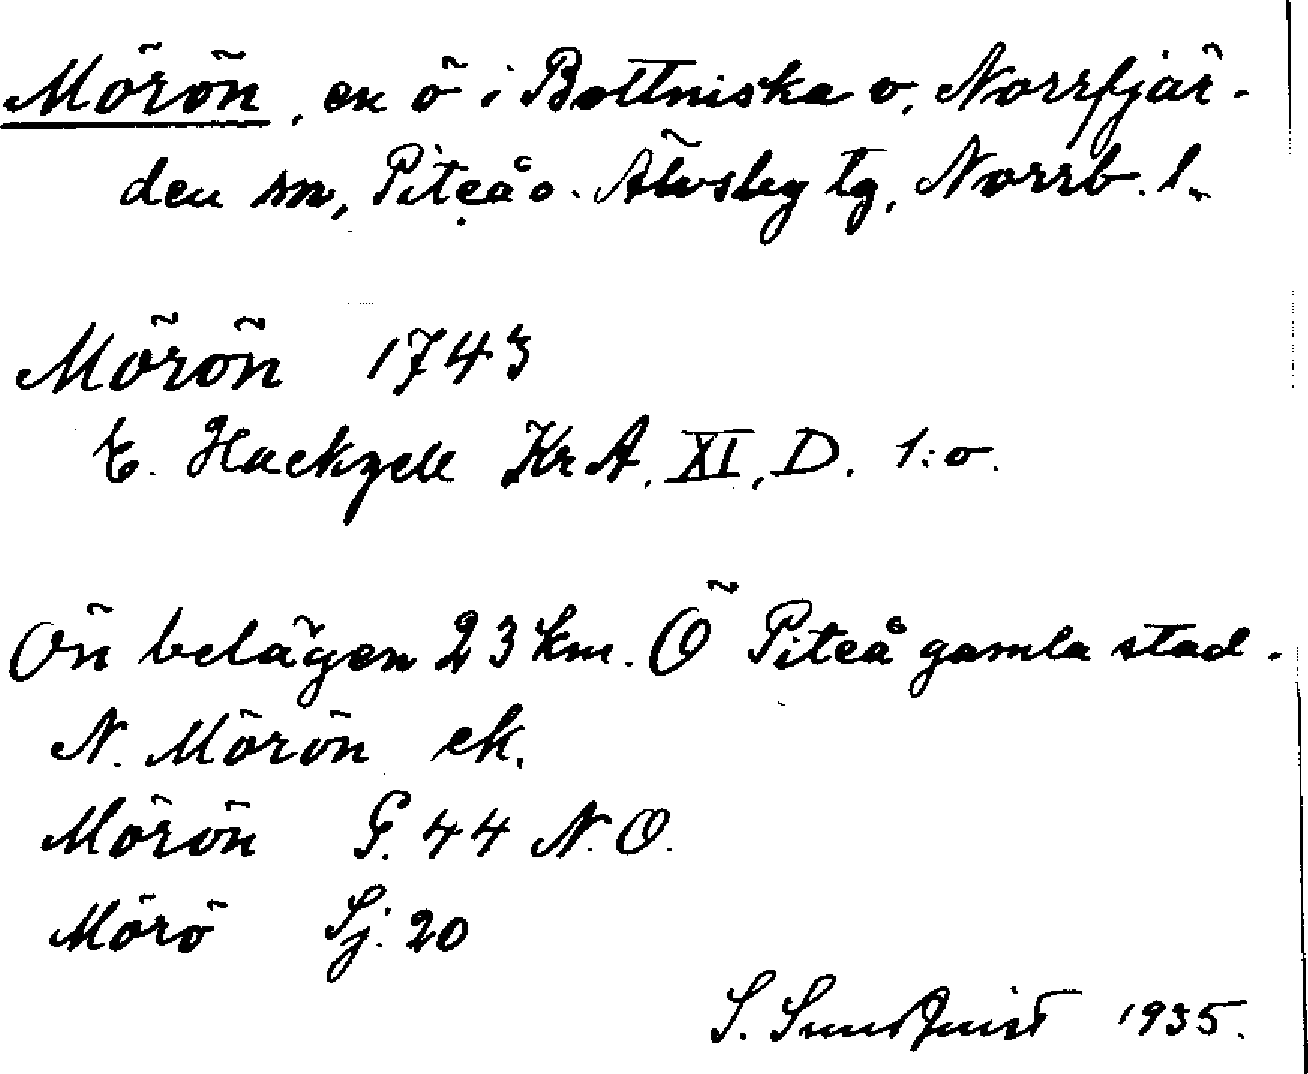 Mörön, en ö i Bottniska v, Norrfjär-
den sn, Piteå o. Älvsby tg, Norrb. l.
Mörön 1743
E. Hackzell Kr A. XI, D. 1:o.
Ön belägen 23 km. Ö Piteå gamla stad.
N. Mörön ek.
Mörön G. 44 N.O.
Mörö Sj. 20
S. Sundquist 1935.